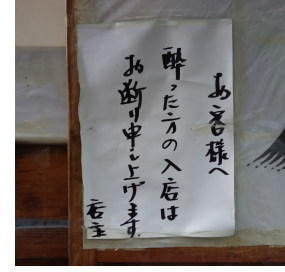 お客様へ
酔った方の入店は
お断り申し上げます。
店主